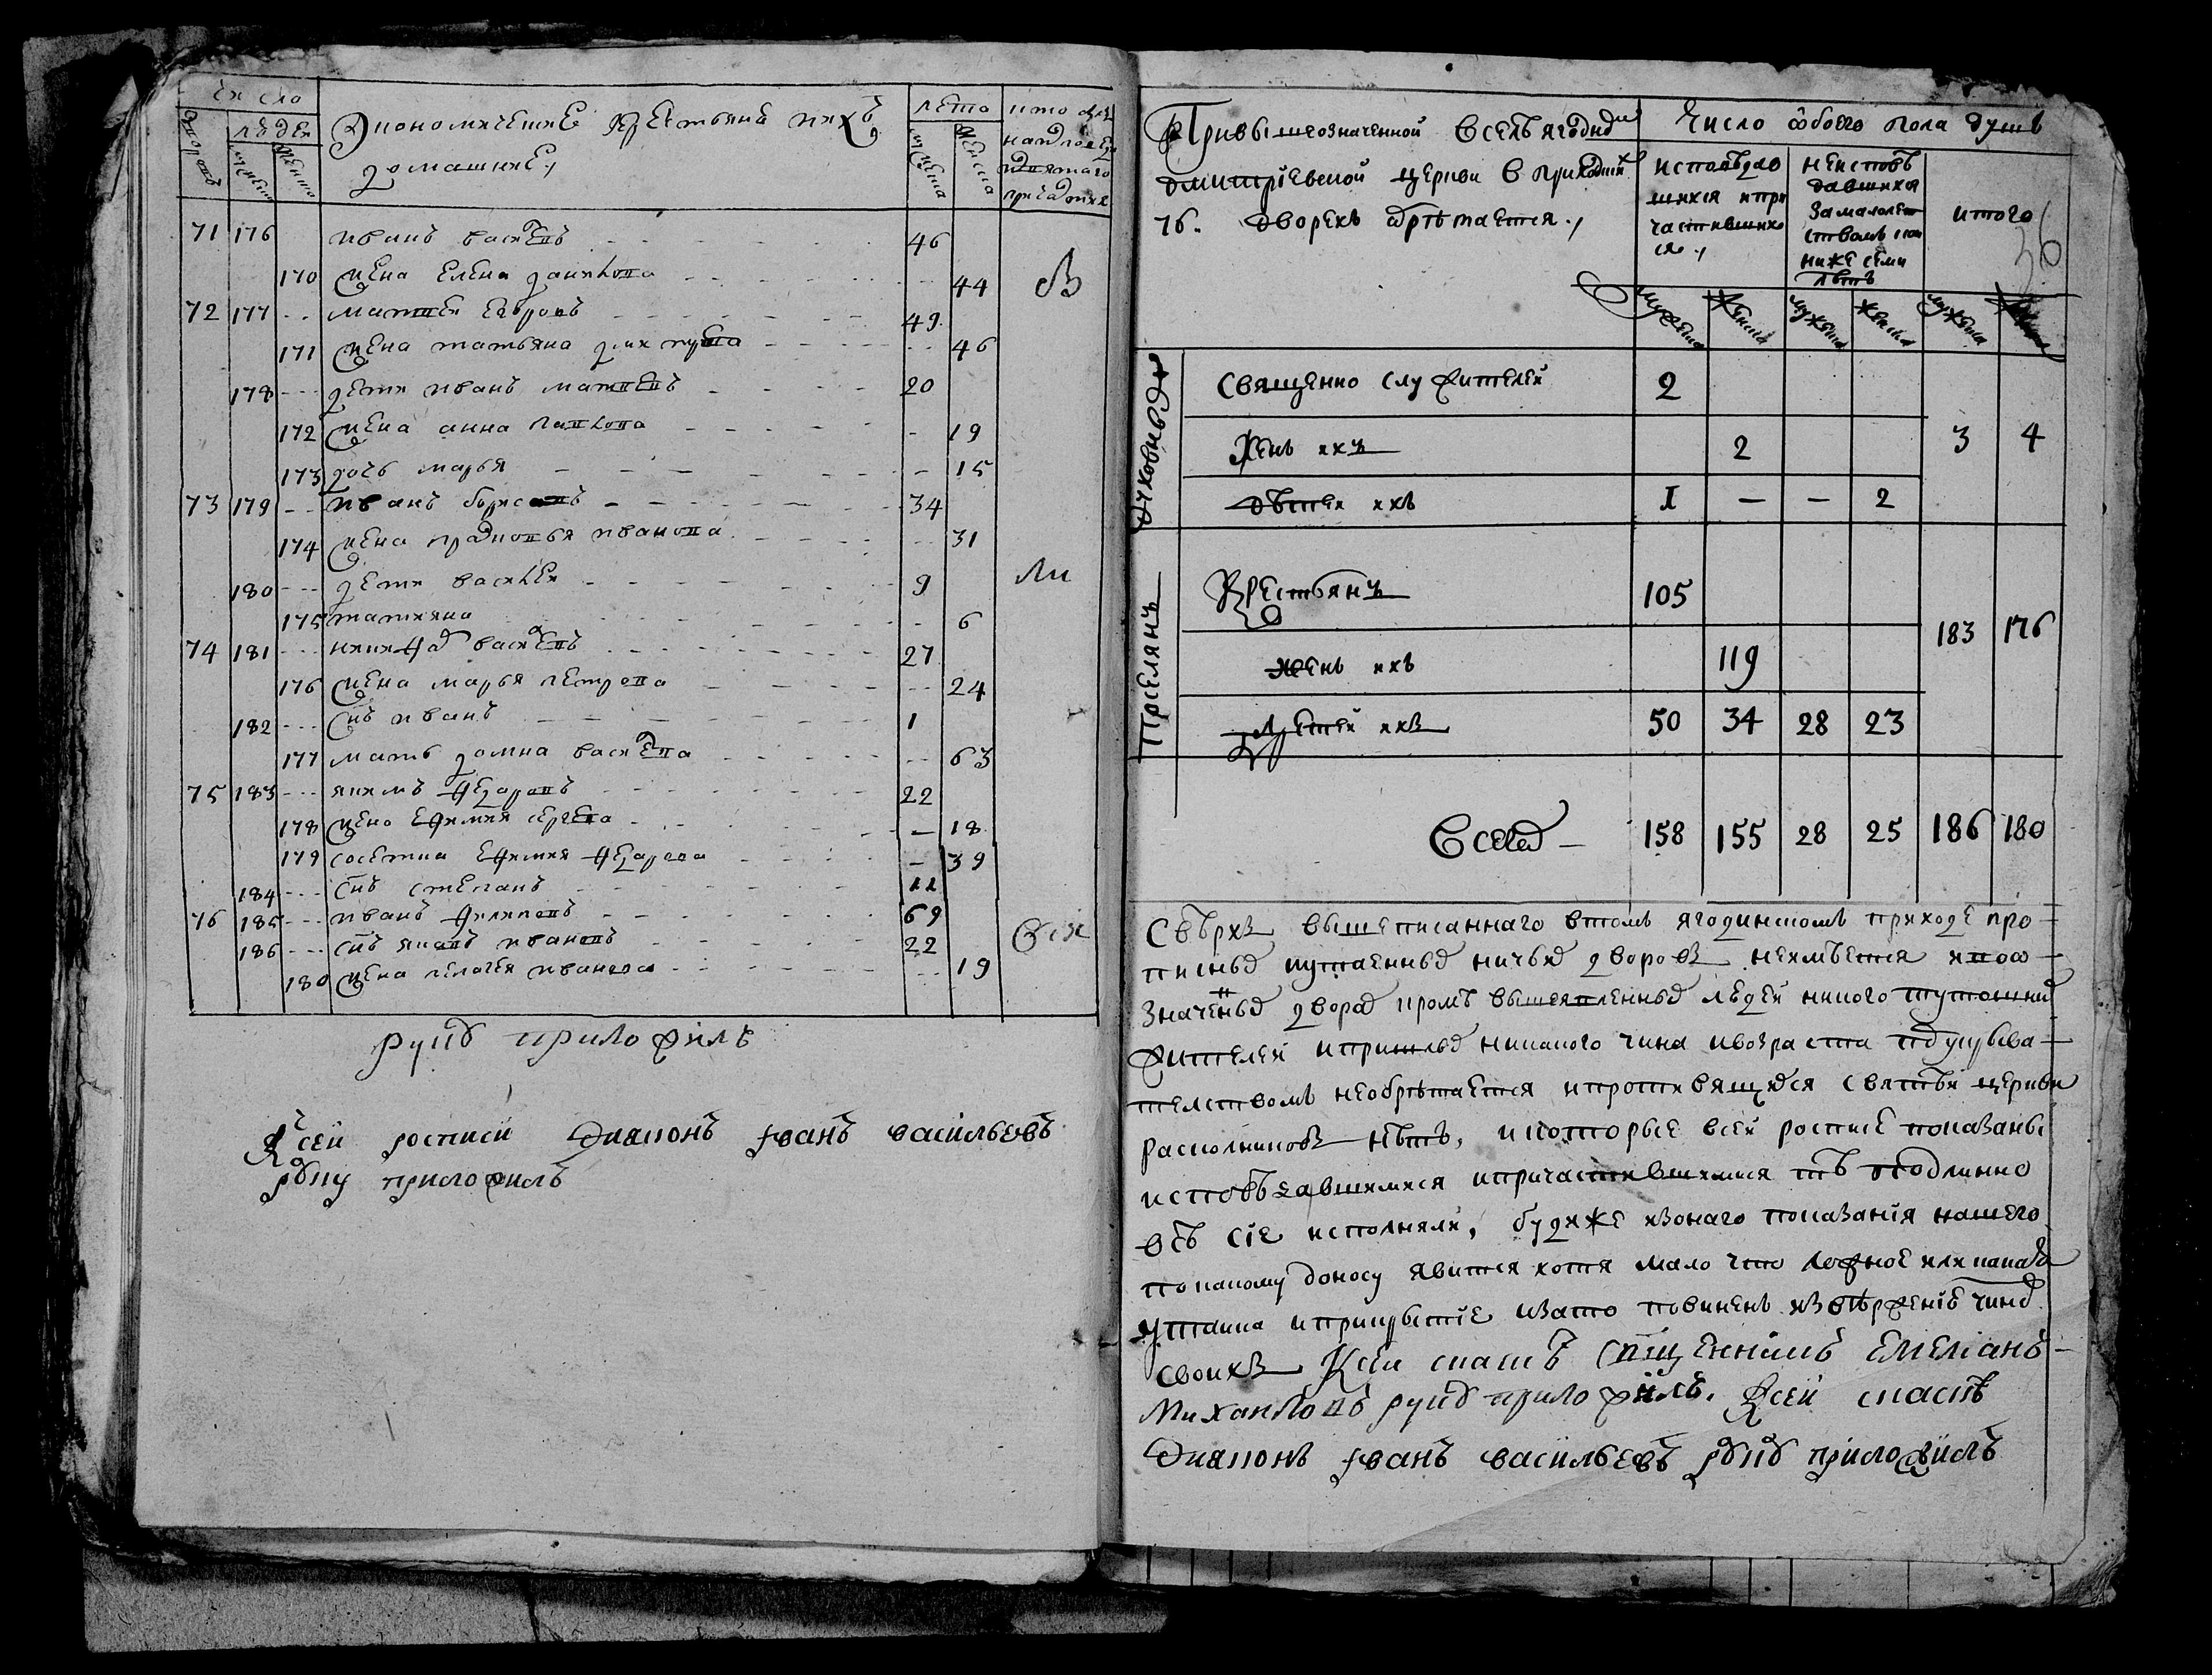 число
дворовъ
людей
мужеска
женска
Экономические крестьяне и ихъ
домашние
лета
мужеска
женска
кто из
71 176 иванъ васильевъ 46
170 жена елена данилова 44
72 177 матвей 49
171 жена татьяна 46
178 дети иванъ матвеевъ 20
172 жена анна павлова 19
173 дочь марья 15
73 179 иванъ борисовъ 34
174 жена прасковья иванова 31
180 дети василей 9
175 татияна 6
74 181 василевъ 27
176 жена марья петрова 24
182 снъ иванъ 1
177 мать домна василева 63
75 183 якимъ 22
178 жена ефимия 18
179 ефимия 39
184 снъ степанъ 11
76 185 иванъ филиповъ 69
186 снъ яковъ ивановъ 22
180 жена пелагея иванова 19
руку приложилъ
Ксей росписи Диаконъ Іванъ васильевъ
руку приложилъ
При вышеозначенной в селѣ ягодн
дмитріевской церкви в приходѣ
76. дворехъ обрѣтается
Число обоего пола душъ
исповѣдо
вшихся и при
частившихс
ся
неисповѣ
давшихся
за малолет
ствомъ
ниже семи
лѣтъ
итого
36
мужеска женска мужеска женска мужеска
Духовныхъ
Священно служителей 2
Женъ ихъ 2
3 4
дѣтей ихъ 1 — — 2
Поселянъ
Крестьянъ 105
183 176
женъ ихъ 119
Детей ихъ 50 34 28 23
Всего — 158 155 28 25 186 180
Свѣрхъ вышеписаннаго в томъ ягодинскомъ приходе про
писныхъ и утаенныхъ ничьихъ дворовъ неимѣется и в оо
значеныхъ дворахъ кромѣ вышеявленныхъ людей никого тутошних
жителей и пришлыхъ никакого чина и возраста под укрыва
телством необрѣтается и противящихся святѣй церкви
расколников нѣтъ, и которые в сей росписе показаны
исповѣдавшимися и причастившимися тѣ подлинно
всѣ сіе исполняли, буди же из онаго показанія нашего
по какому доносу явится хотя мало что ложное или какая
утайка и прикрытіе и за то повинен извѣржение чинов
своихъ Ксей скаске священникъ Емеліанъ
Михайловъ руку приложилъ. Ксей скаске
Диаконъ Іванъ васильевъ руку приложилъ